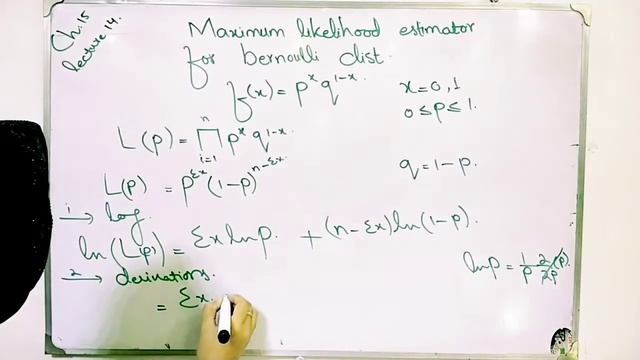 Ch.15
lecture 14.
Maximum likelihood estimator
for bernoulli dist.
f(x) = p^x q^{1-x}.
x = 0, 1
0 ≤ p ≤ 1.
L(p) = ∏_{i=1}^{n} p^x q^{1-x}.
L(p) = p^{Σx} (1-p)^{n-Σx}.
q = 1 - p.
1 → log.
ln(L(p)) = Σx ln p. + (n - Σx) ln(1-p).
2 → derivations.
ln p = 1/p ∂/∂p (p)
= Σx.